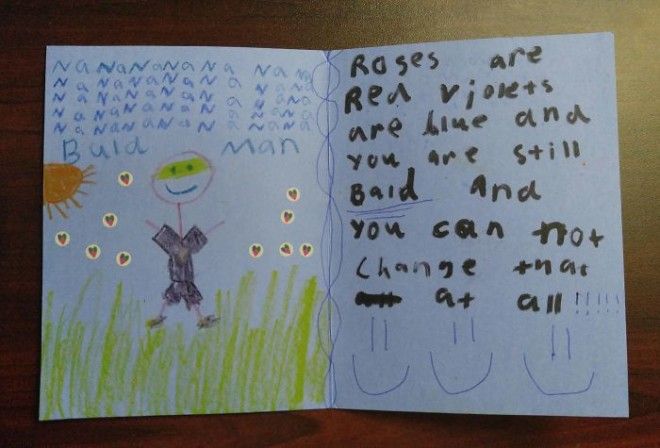 NaNaNaNaNa NaNa
NaNaNaNaNa NaNa
NaNaNaNaNa NaNa
NaNaNaNaNa NaNa
NaNaNaNaNa NaNa
Buld Man
Roses are
Red vjolets
are blue and
you are still
Bald and
You can not
Change that
at all!!!!!